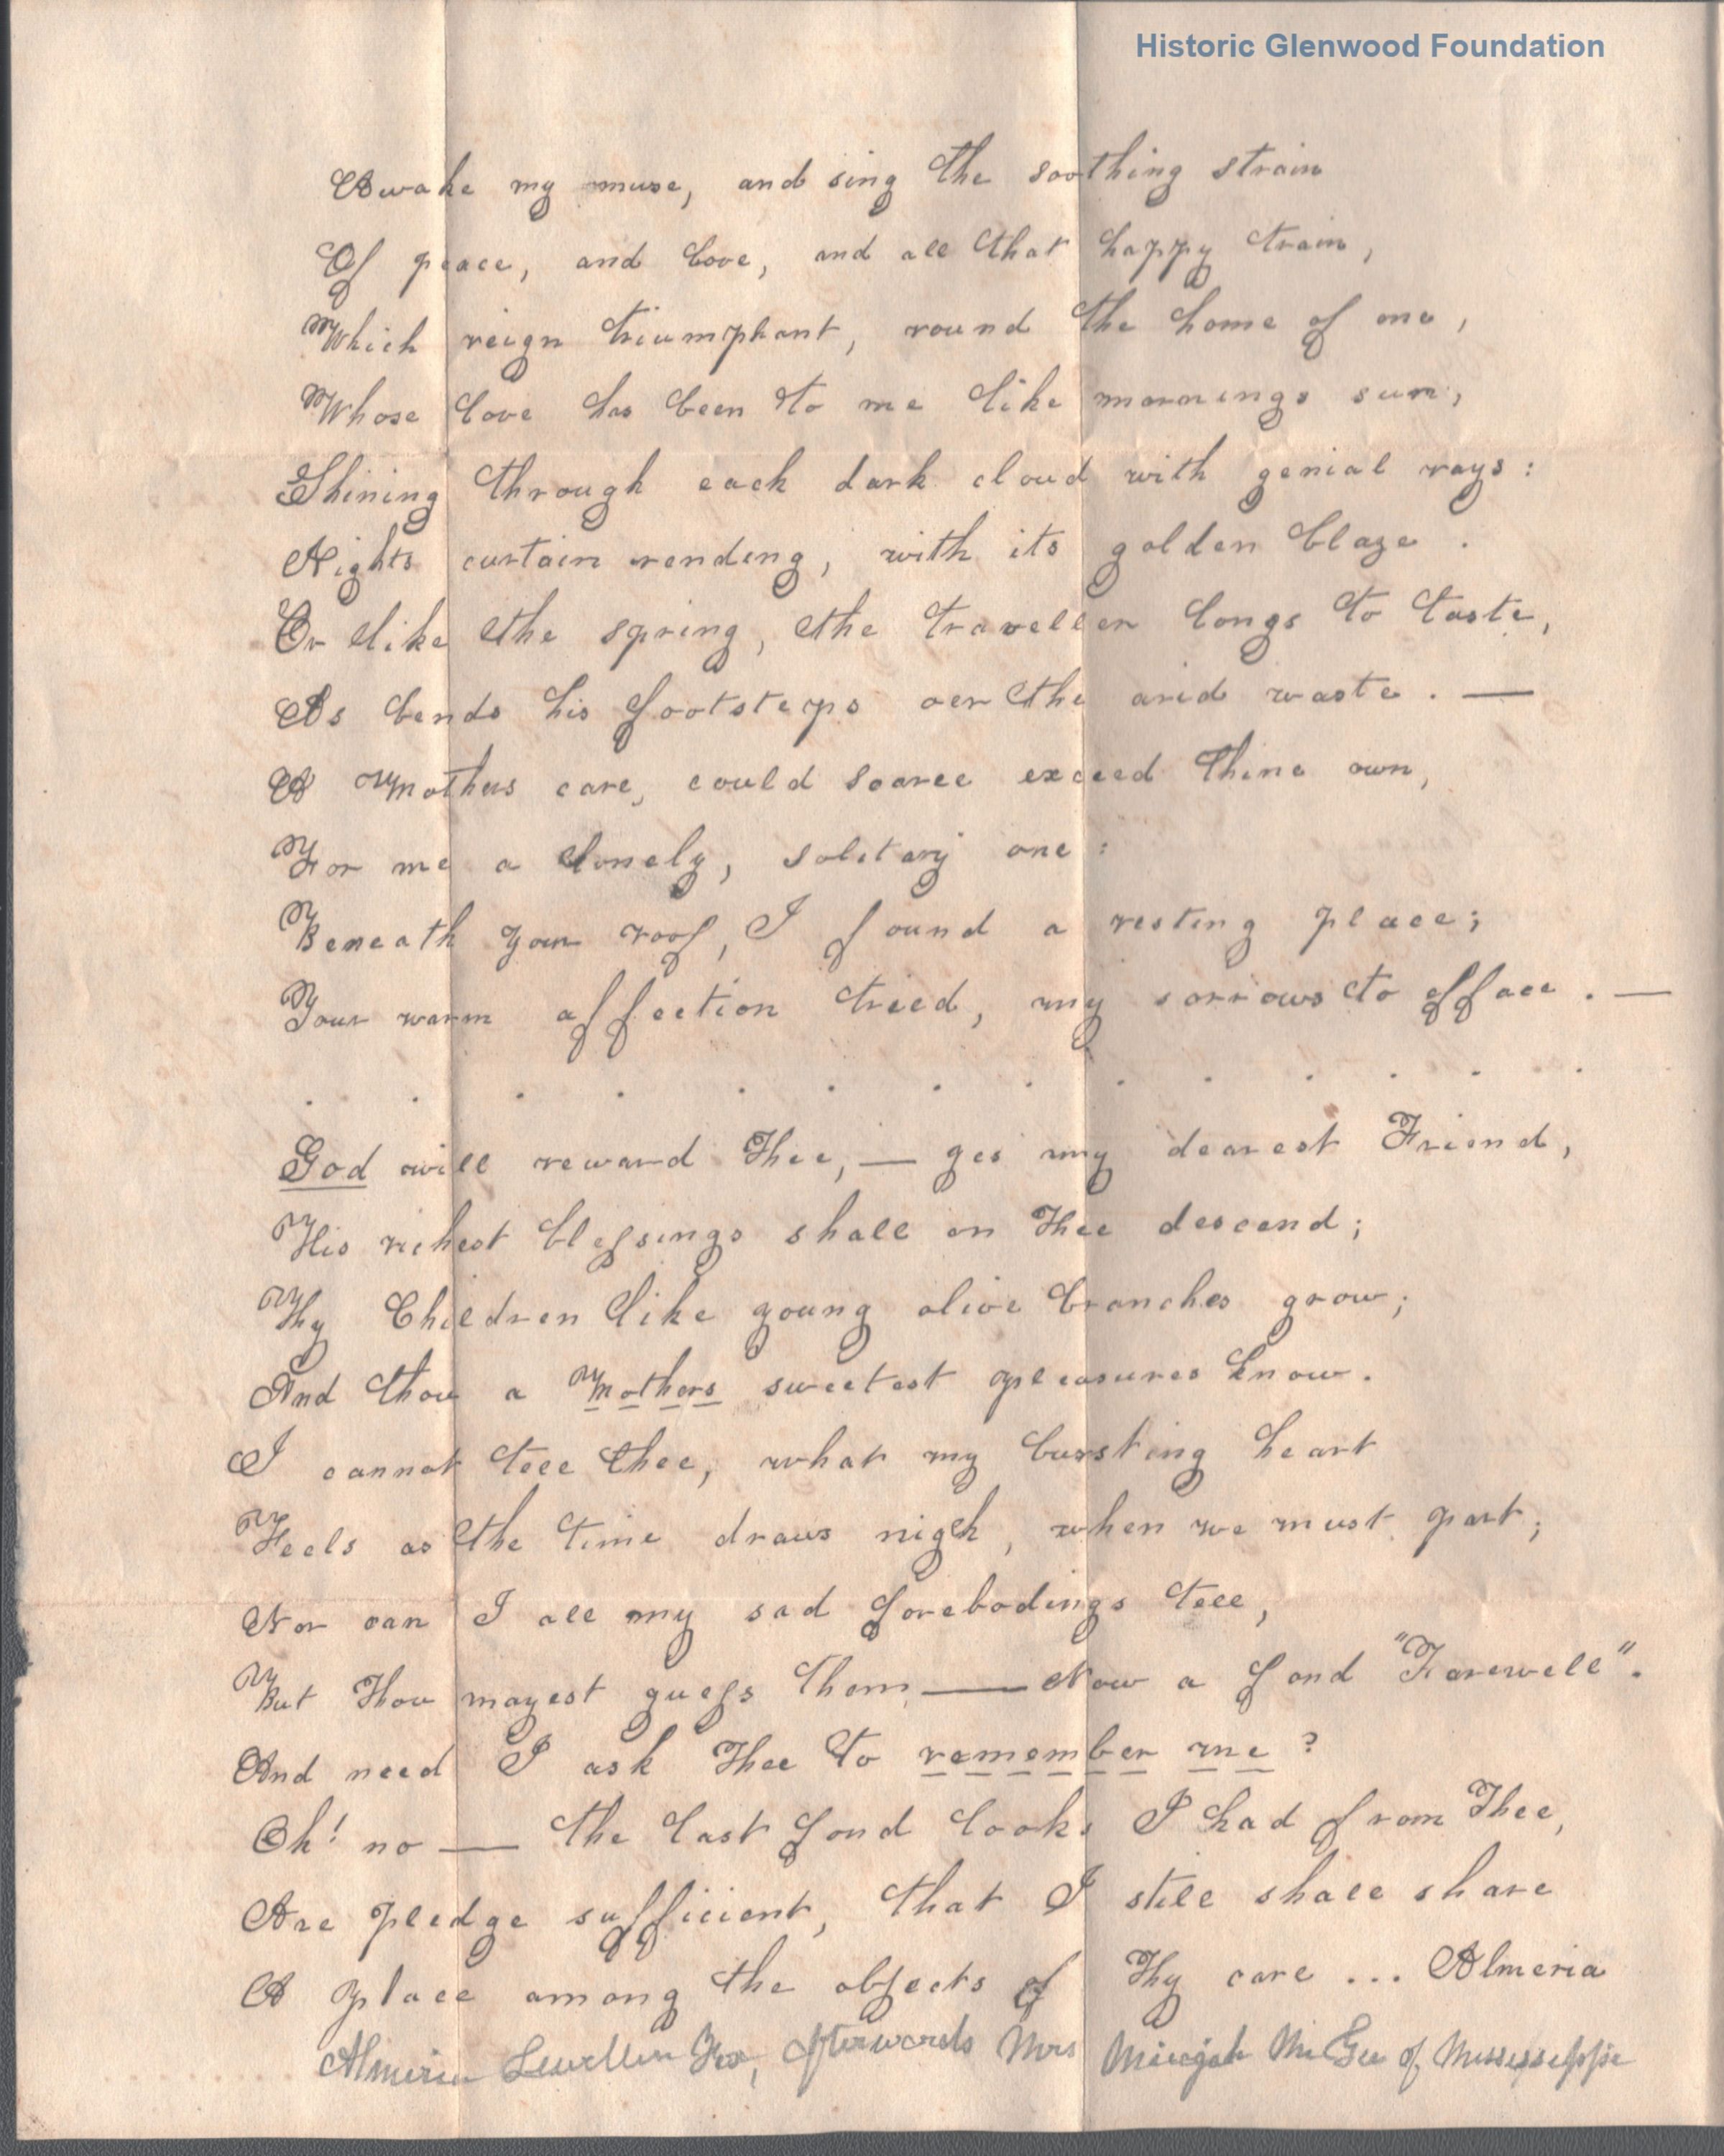 Historic Glenwood Foundation
Awake my muse, and sing the soothing strain
Of peace, and love, and all that happy train,
Which reign triumphant, round the home of one,
Whose love has been to me like mornings sun,
Shining through each dark cloud with genial rays:
Nights curtain rending, with its golden blaze.
Or like the spring, the traveller longs to taste,
As bends his footsteps oer the arid waste. —
A Mothers care, could scarce exceed thine own,
For me a lonely, solitary one:
Beneath your roof, I found a resting place;
Your warm affection tried, my sorrows to efface. —
. . . . . . . . . . . . . .
God will reward Thee, — yes my dearest Friend,
His richest blessings shall on Thee descend;
Thy Children like young olive branches grow;
And thou a Mothers sweetest pleasures know.
I cannot tell thee, what my bursting heart
Feels as the time draws nigh, when we must part;
Nor can I all my sad forebodings tell,
But Thou mayest guess them — Now a fond "Farewell".
And need I ask Thee to remember me?
Oh! no — the last fond looks I had from Thee,
Are pledge sufficient, that I still shall share
A place among the objects of Thy care ... Almeria
Almeria Lewellen Fox, afterwards Mrs Micajah McGee of Mississippi